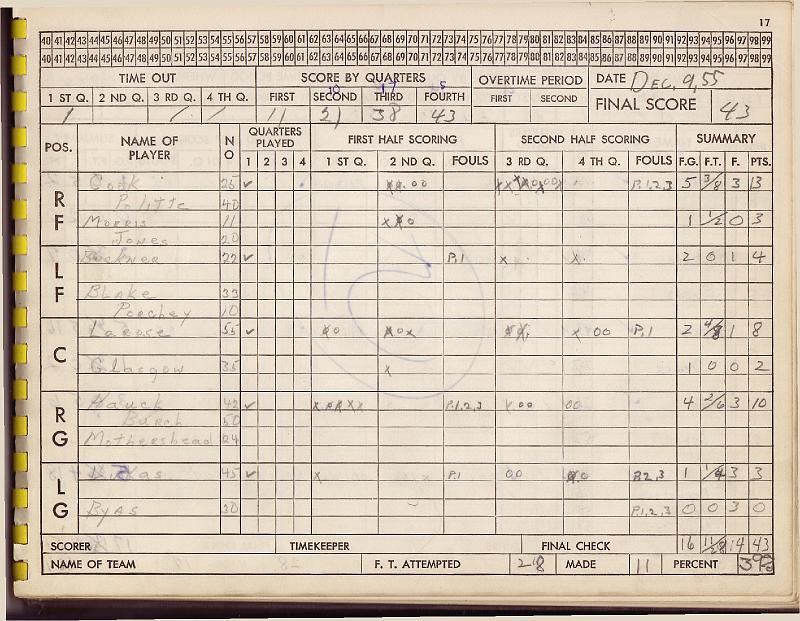 17
40 41 42 43 44 45 46 47 48 49 50 51 52 53 54 55 56 57 58 59 60 61 62 63 64 65 66 67 68 69 70 71 72 73 74 75 76 77 78 79 80 81 82 83 84 85 86 87 88 89 90 91 92 93 94 95 96 97 98 99
40 41 42 43 44 45 46 47 48 49 50 51 52 53 54 55 56 57 58 59 60 61 62 63 64 65 66 67 68 69 70 71 72 73 74 75 76 77 78 79 80 81 82 83 84 85 86 87 88 89 90 91 92 93 94 95 96 97 98 99
TIME OUT SCORE BY QUARTERS OVERTIME PERIOD DATE Dec. 9, 55
1 ST Q. 2 ND Q. 3 RD Q. 4 TH Q. FIRST SECOND THIRD FOURTH FIRST SECOND FINAL SCORE 43
11 21 38 43
POS. NAME OF PLAYER NO QUARTERS PLAYED FIRST HALF SCORING SECOND HALF SCORING SUMMARY
1 2 3 4 1 ST Q. 2 ND Q. FOULS 3 RD Q. 4 TH Q. FOULS F.G. F.T. F. PTS.
RF Cook 25 ✓ P.1,2,3 5 3/8 3 13
Politte 40
Morris 11 1 1/2 0 3
Jones 20
LF Buckner 22 ✓ P.1 x x 2 0 1 4
Blake 33
Peachey 10
C LaRose 55 ✓ P.1 2 4/8 1 8
Glasgow 35 x 1 0 0 2
RG Hauck 42 ✓ P.1,2,3 x 00 00 4 2/6 3 10
Burch 50
Mothershead 24
LG 45 ✓ x P.1 00 P.2,3 1 1/4 3 3
Byas 30 P.1,2,3 0 0 3 0
SCORER TIMEKEEPER FINAL CHECK 16 11/28 14 43
NAME OF TEAM F. T. ATTEMPTED 28 MADE 11 PERCENT 39%